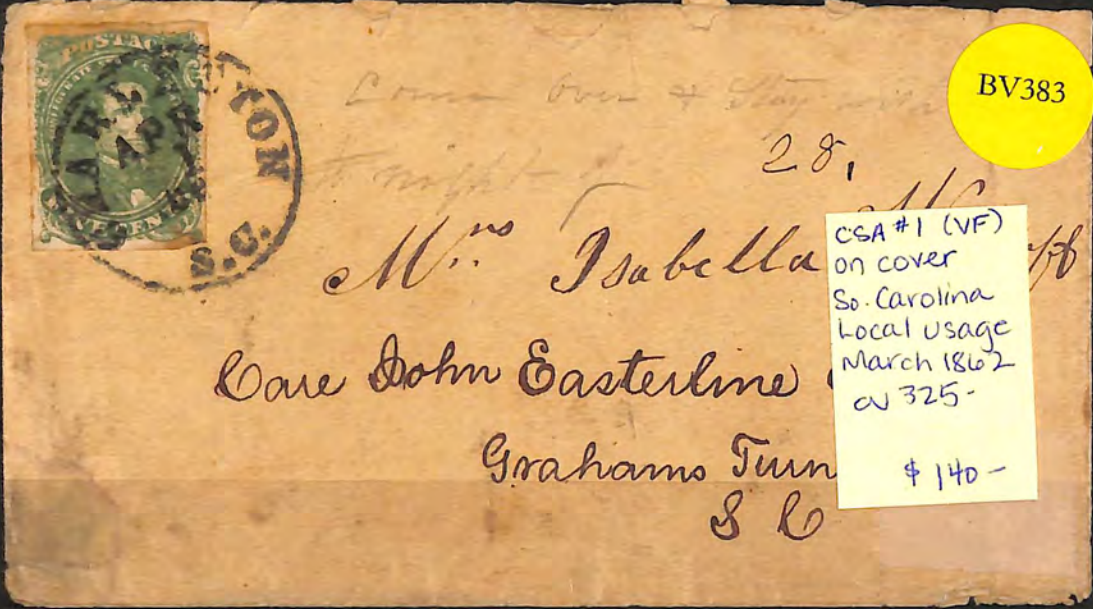 POSTAGE
APR
S.C.
BV383
Come over & Stay with
to night
28,
Mrs Isabella
Care John Easterline
Grahams Turn
S C
CSA #1 (VF)
on cover
So. Carolina
Local usage
March 1862
CV 325-
$ 140-